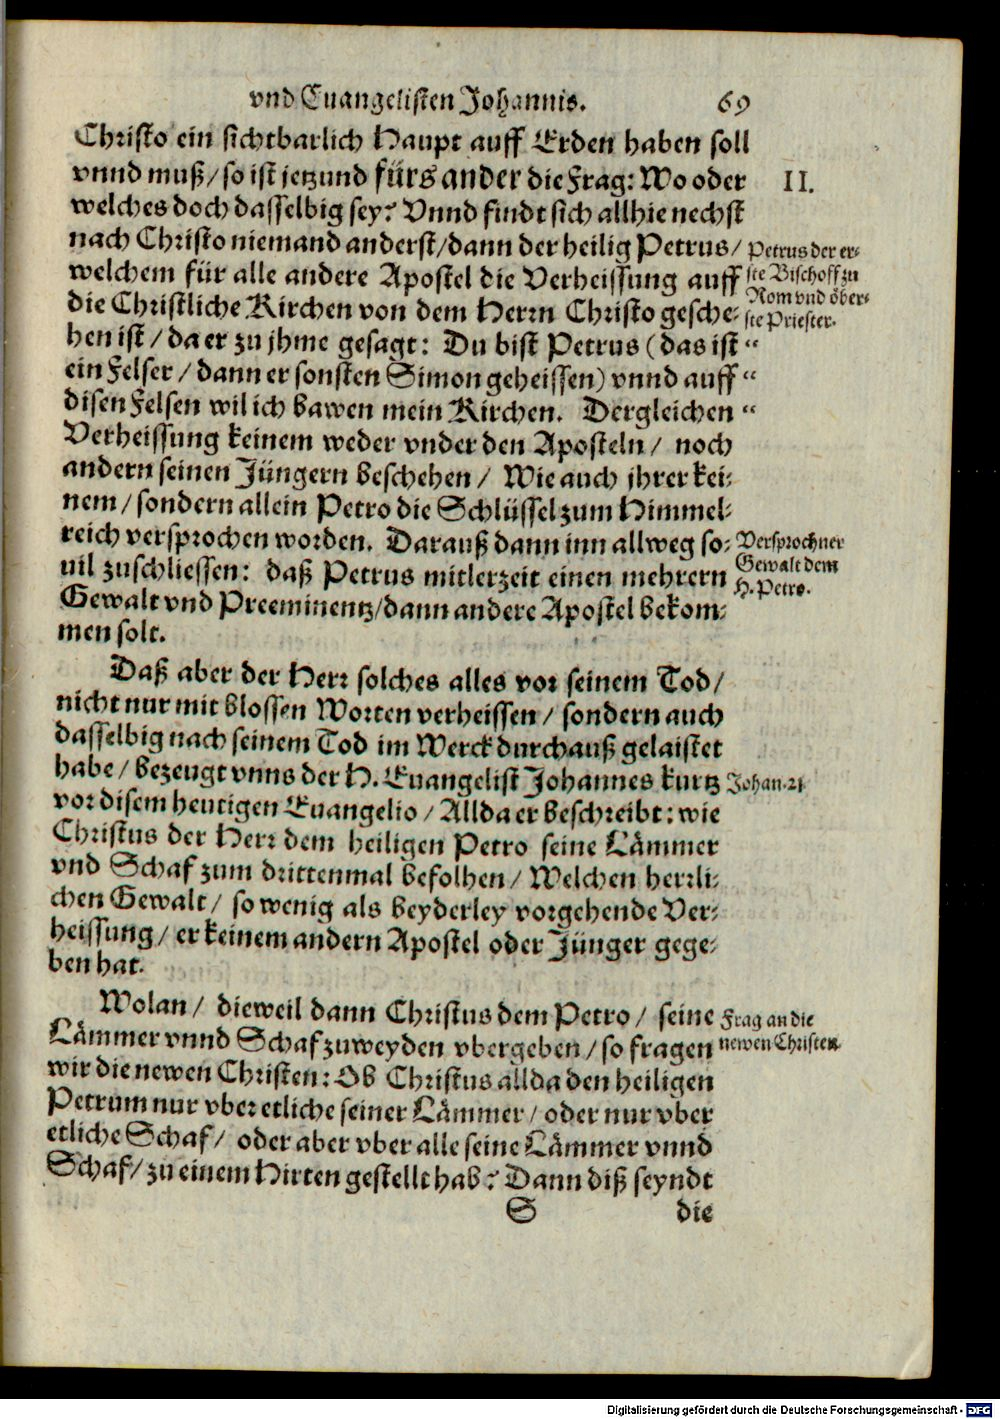 vnd Euangelisten Johannis. 69
Christo ein sichtbarlich Haupt auff Erden haben soll
vnnd muß/ so ist jetzund fürs ander die Frag: Wo oder
II.
welches doch dasselbig sey? Vnnd findt sich allhie nechst
nach Christo niemand anderst/ dann der heilig Petrus/
welchem für alle andere Apostel die Verheissung auff
die Christliche Kirchen von dem Herrn Christo gesche-
Petrus der er-
ste Bischoff zu
Rom vnd öber-
ste Priester.
hen ist/ da er zu jhme gesagt: Du bist Petrus (das ist “
ein Felser/ dann er sonsten Simon geheissen) vnnd auff “
disen Felsen wil ich bawen mein Kirchen. Dergleichen “
Verheissung keinem weder vnder den Aposteln/ noch
andern seinen Jüngern beschehen/ Wie auch jhrer kei-
nem/ sondern allein Petro die Schlüssel zum Himmel-
reich versprochen worden. Darauß dann inn allweg so-
uil zuschliessen: daß Petrus mitlerzeit einen mehrern
Gewalt vnd Preeminentz/ dann andere Apostel bekom-
men solt.
Versprochner
Gewalt dem
H. Petro.
Daß aber der Herr solches alles vor seinem Tod/
nicht nur mit blossen Worten verheissen/ sondern auch
dasselbig nach seinem Tod im Werck durchauß gelaistet
habe/ bezeugt vnns der H. Euangelist Johannes kurtz
Johan. 21
vor disem heutigen Euangelio/ Allda er beschreibt: wie
Christus der Herr dem heiligen Petro seine Lämmer
vnd Schaf zum drittenmal befolhen/ Welchen herrli-
chen Gewalt/ so wenig als beyderley vorgehende Ver-
heissung/ er keinem andern Apostel oder Jünger gege-
ben hat.
Wolan/ dieweil dann Christus dem Petro/ seine
Lämmer vnnd Schaf zuweyden vbergeben/ so fragen
Frag an die
newen Christen.
wir die newen Christen: Ob Christus allda den heiligen
Petrum nur vber etliche seiner Lämmer/ oder nur vber
etliche Schaf/ oder aber vber alle seine Lämmer vnnd
Schaf/ zu einem Hirten gestellt hab? Dann diß seyndt
S die
Digitalisierung gefördert durch die Deutsche Forschungsgemeinschaft - DFG